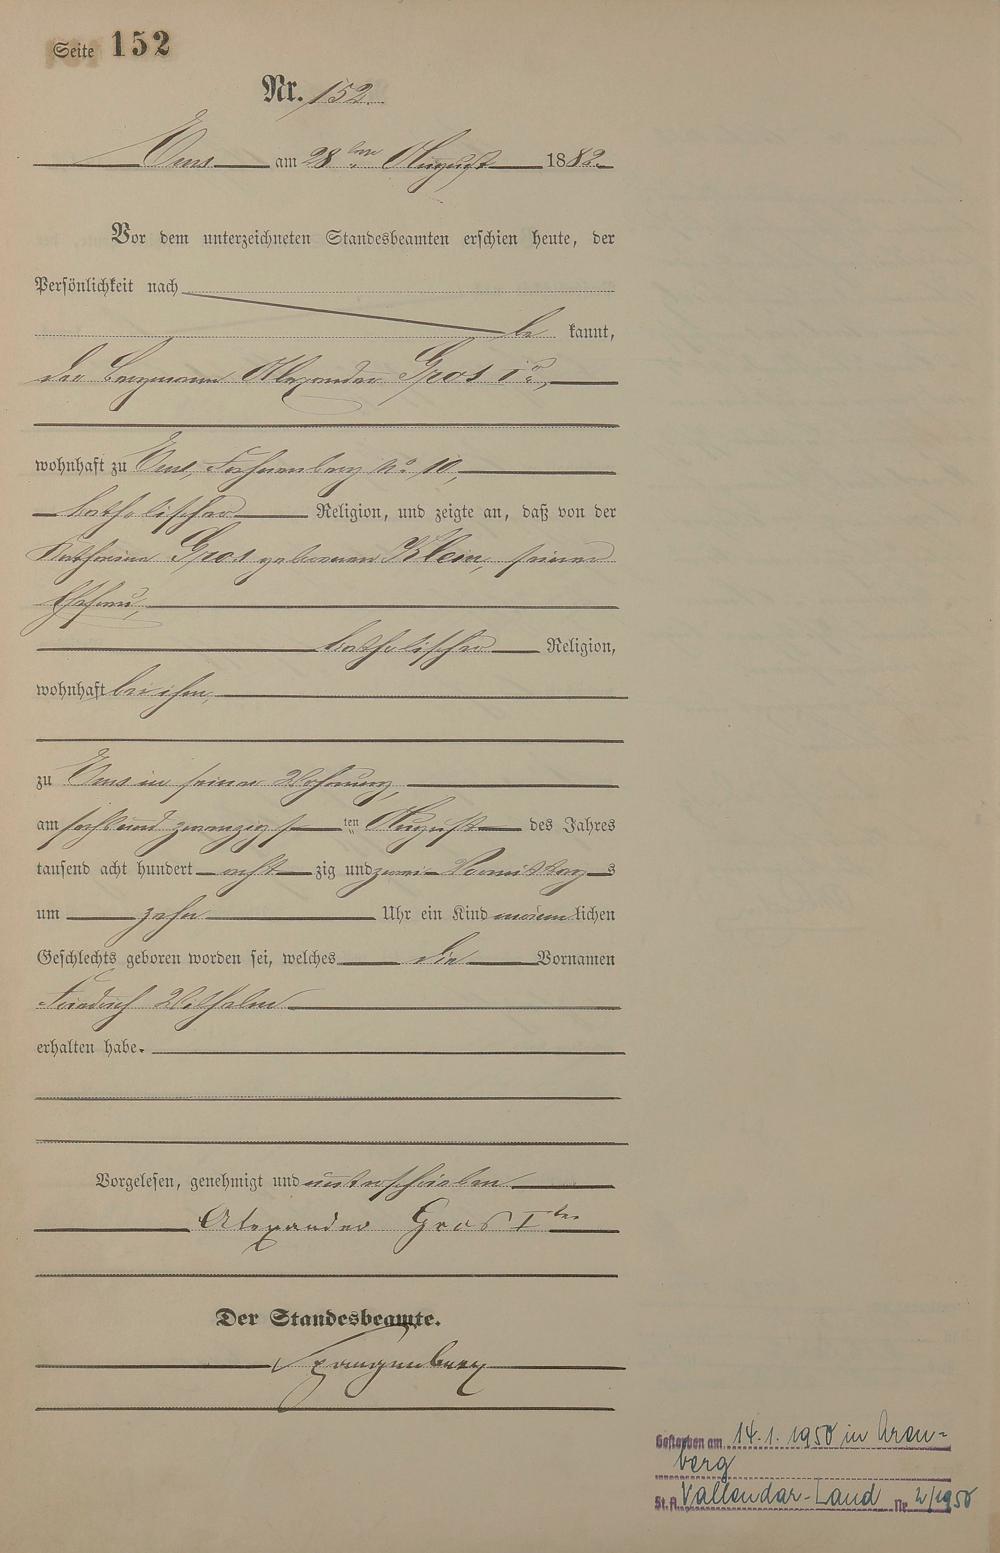 Seite 152
Nr. 152.
Ems am 28ten August 1882.
Vor dem unterzeichneten Standesbeamten erschien heute, der
Persönlichkeit nach
be kannt,
der Bergmann Alexander Gros Ir,
wohnhaft zu Ems, No 10,
katholischer Religion, und zeigte an, daß von der
Katharina Gros geborenen Klein, seiner
Ehefrau,
katholischer Religion,
wohnhaft bei ihm,
zu Ems in seiner Wohnung,
am sechsundzwanzigsten August des Jahres
tausend acht hundert acht zig und zwei Vormittags
um zehn Uhr ein Kind männlichen
Geschlechts geboren worden sei, welches die Vornamen
Friedrich Wilhelm
erhalten habe.
Vorgelesen, genehmigt und unterschrieben
Alexander Gros Iter
Der Standesbeamte.
Spangenberg
Gestorben am 14.1.1950 in Aren-
berg
St.A. Vallendar-Land Nr. 2/1950